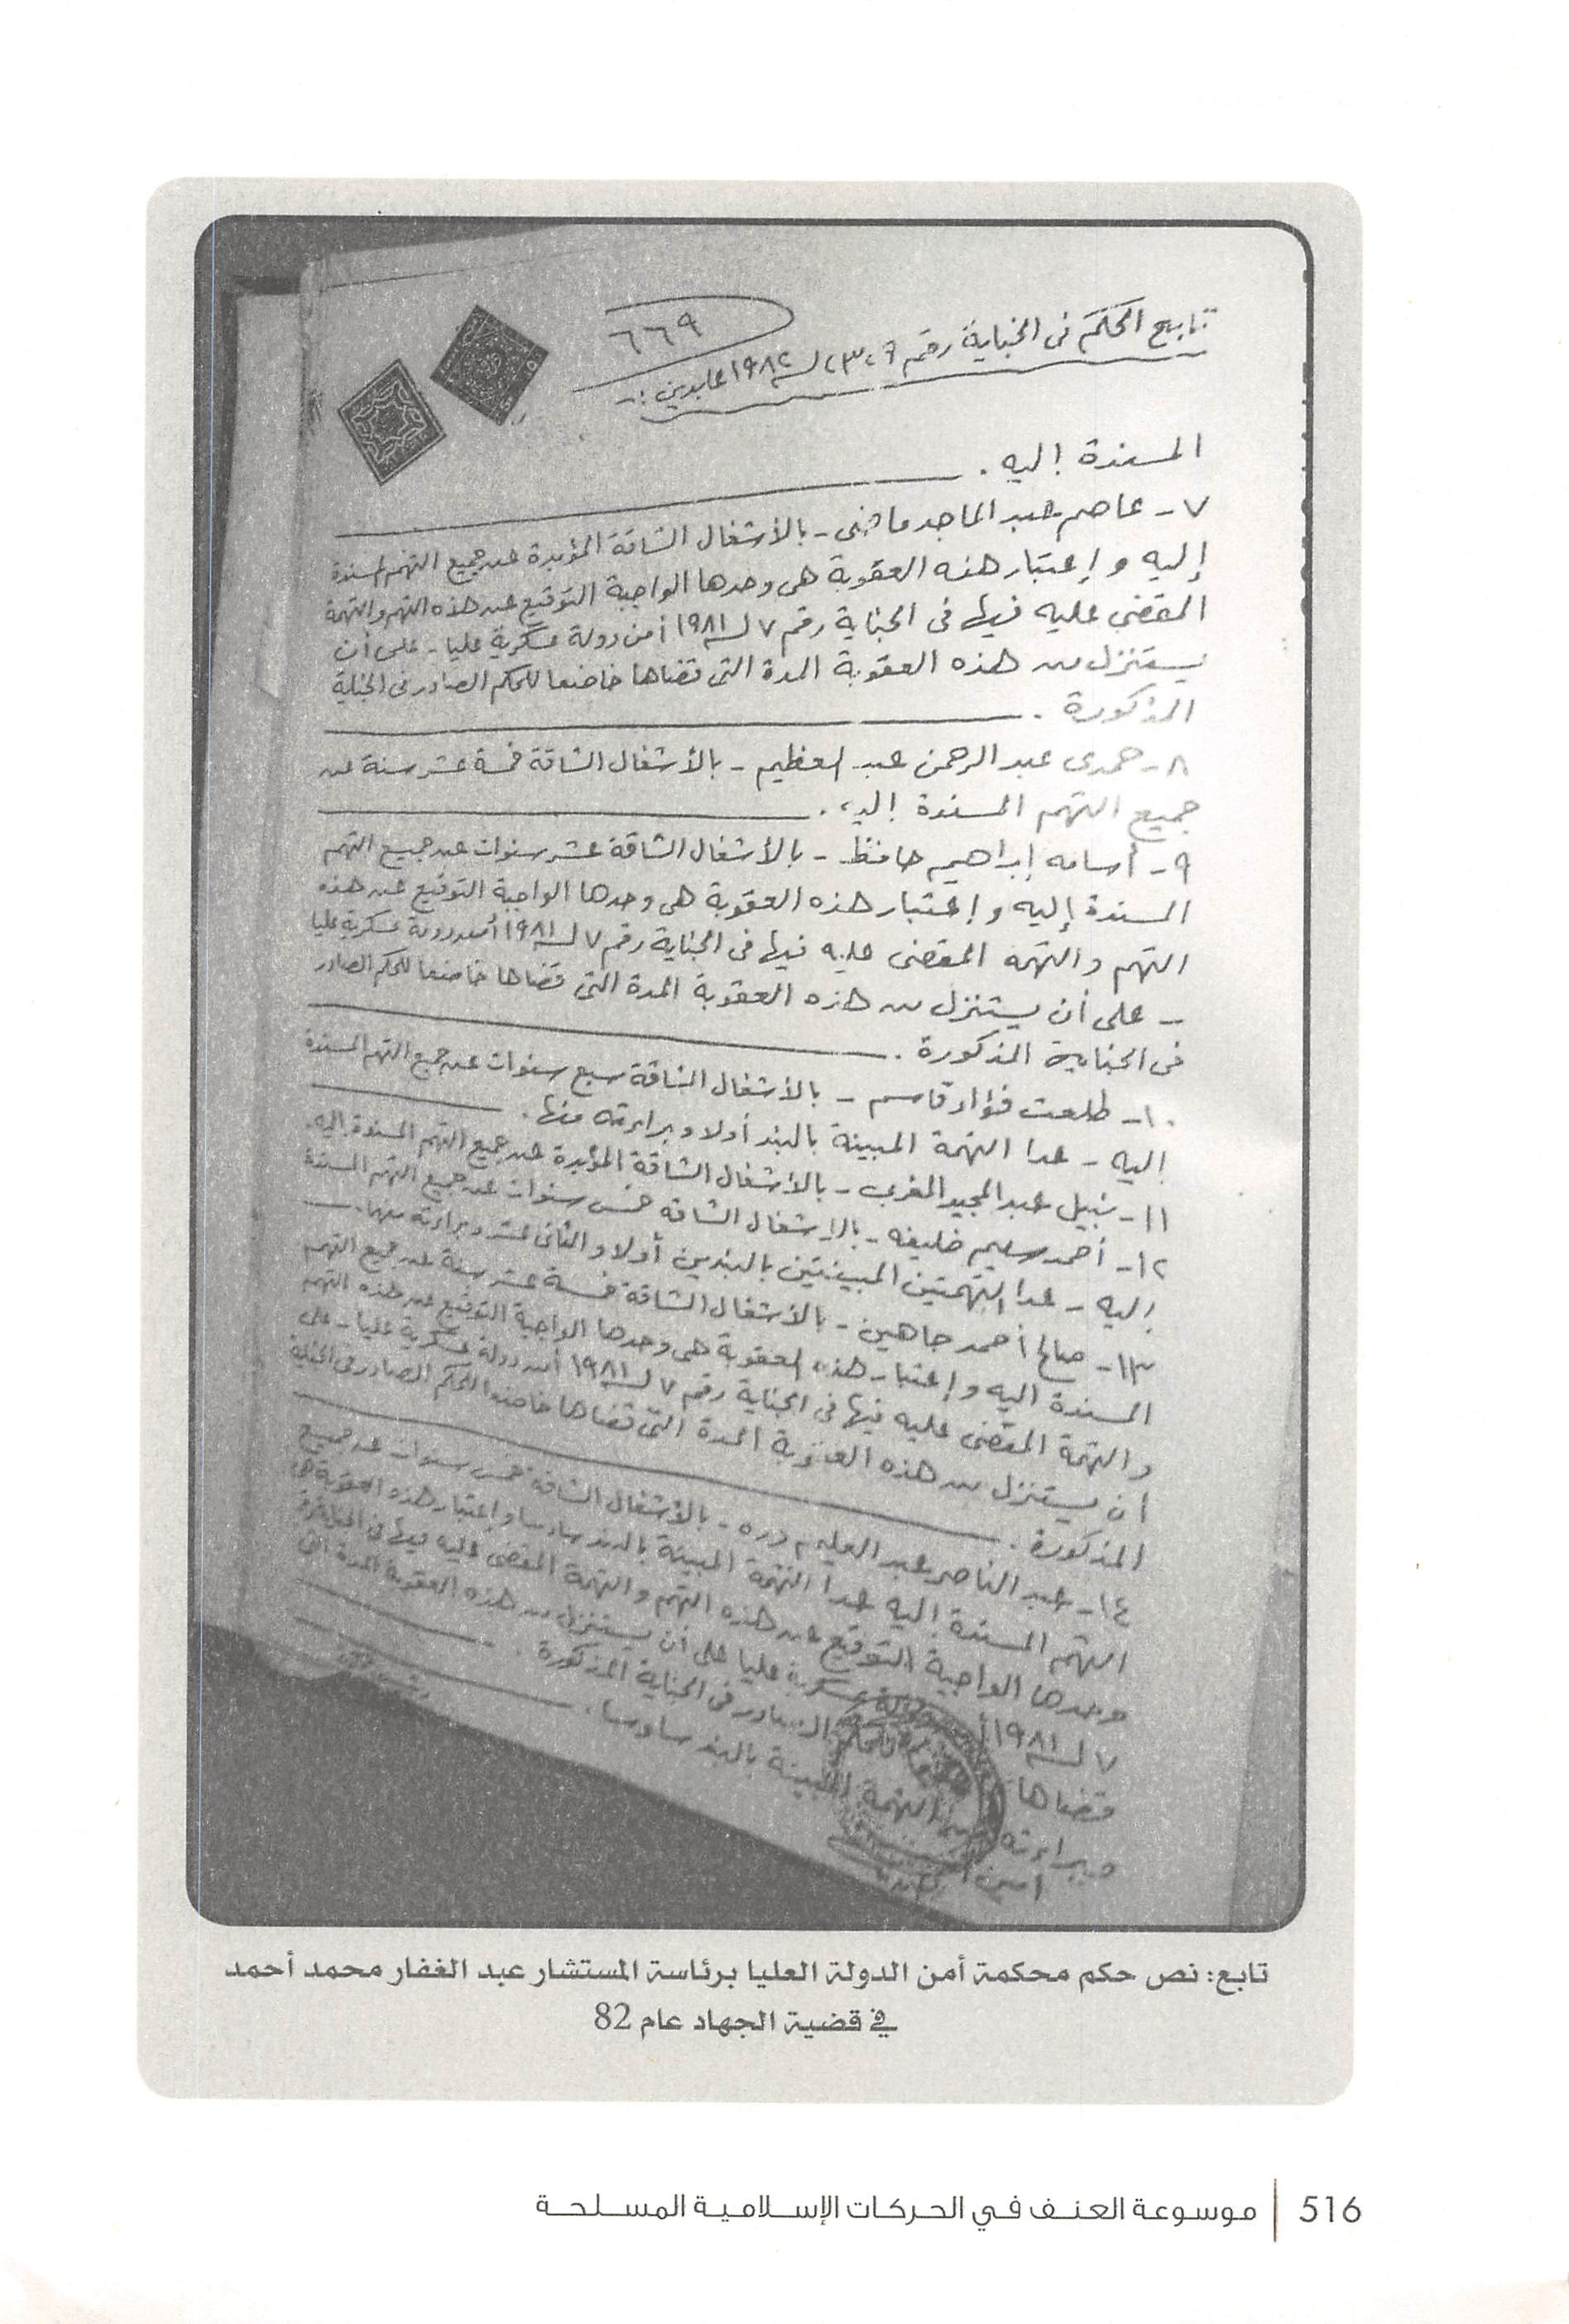 ٦٦٩
تابع الحكم فى الجناية رقم ٣٠٩ لسنة ١٩٨٢ عابدين :-
المسندة إليه .
٧- عاصم عبد الماجد ماضى - بالأشغال الشاقة المؤبدة عن جميع التهم المسندة
إليه و إعتبار هذه العقوبة هى وحدها الواجبة التوقيع عن هذه التهم والتهمة
المقضى عليه فيها فى الجناية رقم ٧ لسنة ١٩٨١ أمن دولة عسكرية عليا - على أن
يستنزل من هذه العقوبة المدة التى قضاها خاضعا للحكم الصادر فى الجناية
المذكورة .
٨- حمدى عبد الرحمن عبد العظيم - بالأشغال الشاقة خمسة عشر سنة عن
جميع التهم المسندة إليه .
٩- أسامه إبراهيم حافظ - بالأشغال الشاقة عشر سنوات عن جميع التهم
المسندة إليه و إعتبار هذه العقوبة هى وحدها الواجبة التوقيع عن هذه
التهم و التهمه المقضى عليه فيها فى الجناية رقم ٧ لسنة ١٩٨١ أمن دولة عسكرية عليا
- على أن يستنزل من هذه العقوبة المدة التى قضاها خاضعا للحكم الصادر
فى الجناية المذكورة .
١٠- طلعت فؤاد قاسم - بالأشغال الشاقة سبع سنوات عن جميع التهم المسندة
إليه - عدا التهمة المبينة بالبند أولا و براءته منها .
١١- نبيل عبد المجيد المغربى - بالأشغال الشاقة المؤبدة عن جميع التهم المسندة إليه .
١٢- أحمد سليم خليفه - بالأشغال الشاقه خمس سنوات عن جميع التهم المسندة
إليه - عدا التهمتين المبينتين بالبندين أولا و الثانى عشر و براءته منهما .
١٣- صالح أحمد جاهين - بالأشغال الشاقة خمسة عشر سنة عن جميع التهم
المسندة اليه و إعتبار هذه العقوبة هى وحدها الواجبة التوقيع عن هذه التهم
و التهمة المقضى عليه فيها فى الجناية رقم ٧ لسنة ١٩٨١ أمن دولة عسكرية عليا - على
أن يستنزل من هذه العقوبة المدة التى قضاها خاضعا للحكم الصادر فى الجناية
المذكورة .
١٤- عبد الناصر عبد العليم دره - بالأشغال الشاقة خمس سنوات عن جميع
التهم المسندة اليه عدا التهمة المبينة بالبند سادسا و إعتبار هذه العقوبة هى
وحدها الواجبة التوقيع عن هذه التهم و التهمة المقضى عليه فيها فى الجناية رقم
٧ لسنة ١٩٨١ أمن دولة عسكرية عليا على أن يستنزل من هذه العقوبة المدة التى
قضاها للحكم الصادر فى الجناية المذكورة .
وبراءته من التهمة المبينة بالبند سادسا .
أمين
تابع: نص حكم محكمة أمن الدولة العليا برئاسة المستشار عبد الغفار محمد أحمد
في قضية الجهاد عام 82
516 | موسوعة العنف في الحركات الإسلامية المسلحة